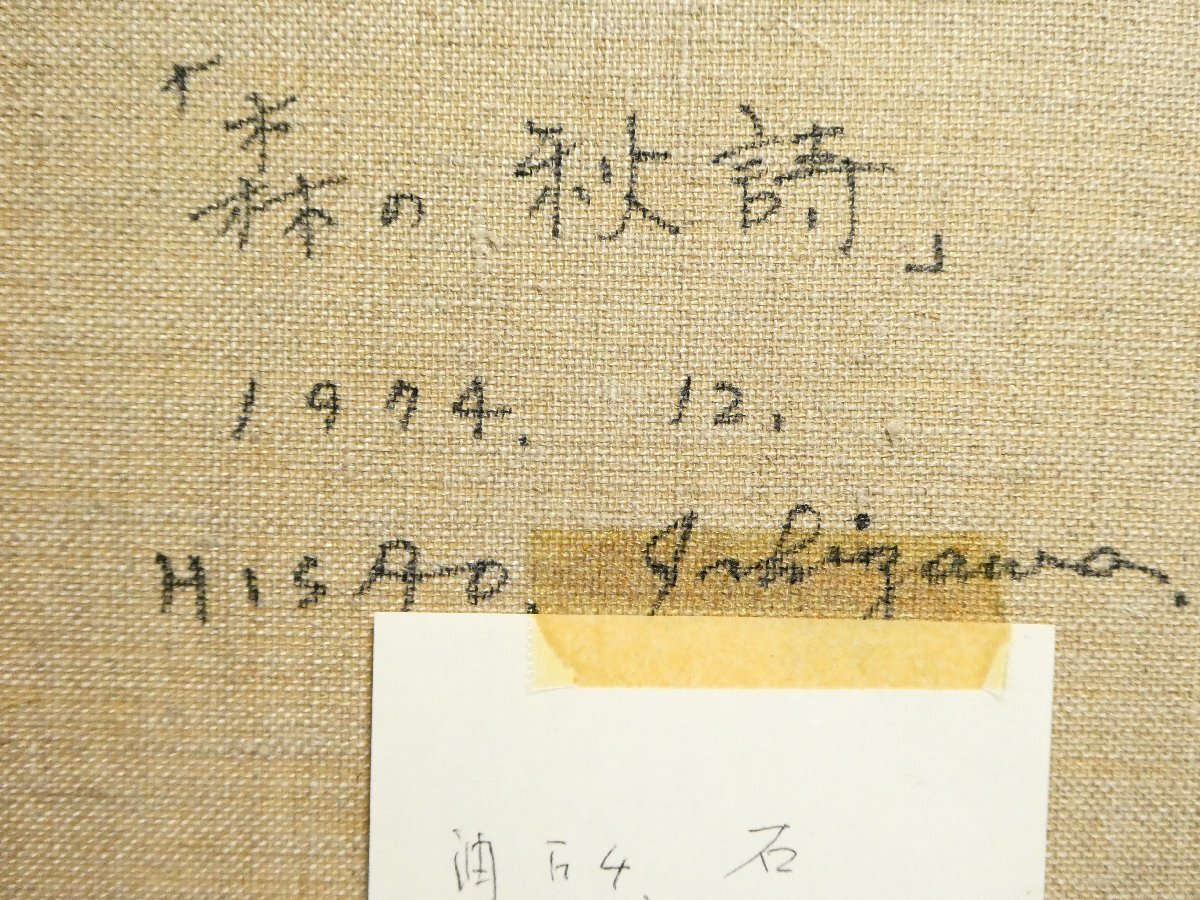 「森の秋詩」
1974. 12.
HISAO. Ishigawa.
油 F4. 石